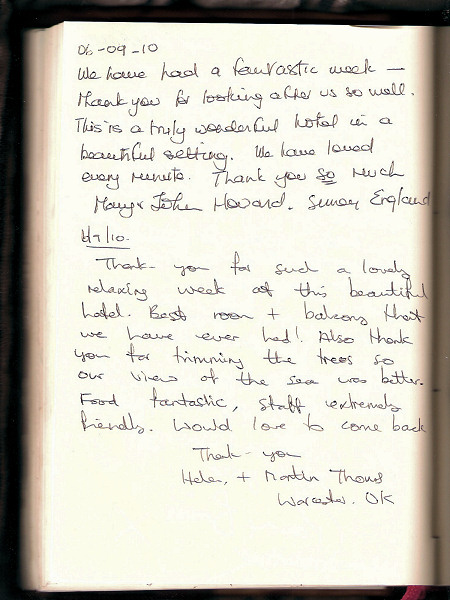 06-09-10
We have had a fantastic week —
thank you for looking after us so well.
This is a truly wonderful hotel in a
beautiful setting. We have loved
every minute. Thank you so much
Mary & John Howard. Surrey England
6/9/10.
Thank-you for such a lovely
relaxing week at this beautiful
hotel. Best room + balcony that
we have ever had! Also thank
you for trimming the trees so
our view of the sea was better.
Food fantastic, staff extremely
friendly. Would love to come back
Thank-you
Helen + Martin
Worcester. UK